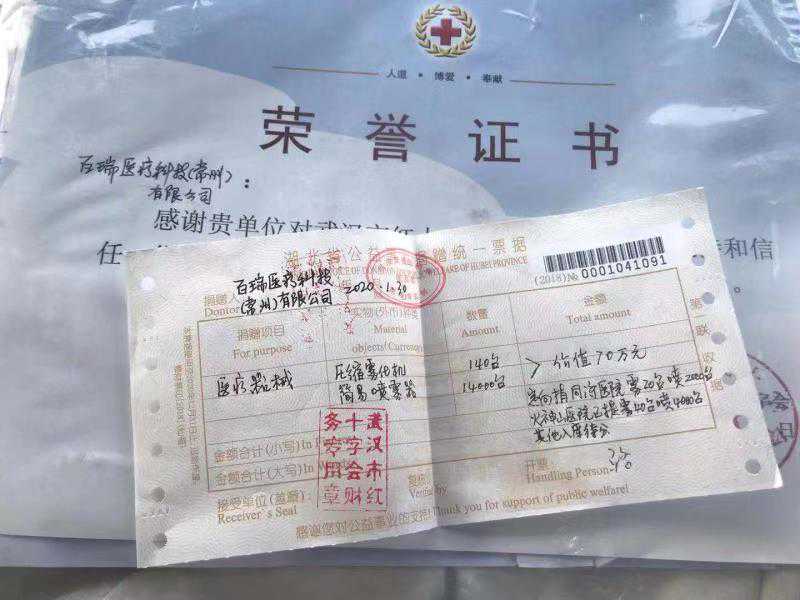 人道 · 博爱 · 奉献
荣誉证书
百瑞医疗科技(常州)
有限公司 :
感谢贵单位对武汉市红
任
持和信
。
湖北省公益 捐赠统一票据
VOICE OF DONATION WELFARE OF HUBEI PROVINCE
(2018) № 0001041091
捐赠人
Donor
百瑞医疗科技
(常州)有限公司
2020.1.30
捐赠项目
For purpose
实物(外币)种类
Material
objects(Currency)
数量
Amount
金额
Total amount
医疗器械
压缩雾化机
简易喷雾器
140台
14000台
> 价值70万元
定向捐同济医院雾20台喷2000台
火神山医院已提雾40台喷4000台
其他入库待分
金额合计(小写)In
金额合计(大写)In
接受单位(盖章)
Receiver's Seal
复核
Verified by
开票
Handling Person
武汉市红
十字会财
务专用章
感谢您对公益事业的支持! Thank you for support of public welfare!
第二联 收据